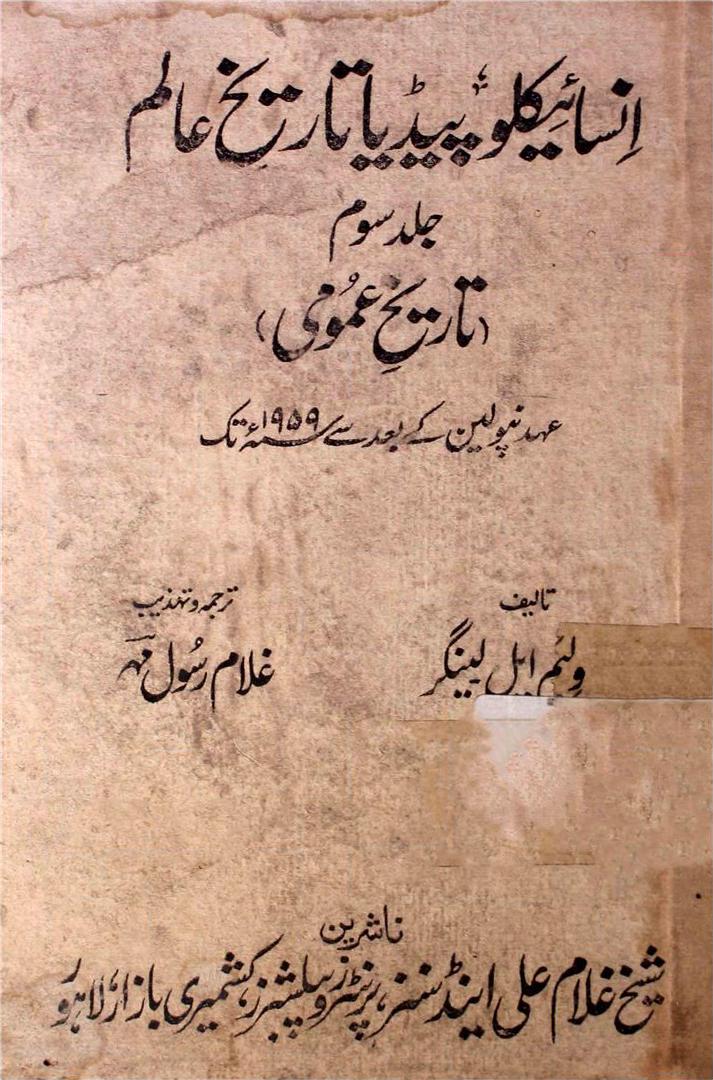 انسائیکلوپیڈیا تاریخ عالم
جلد سوم
(تاریخِ عمُومی)
عہد نپولین کے بعد سے ۱۹۵۹ء تک
تالیف
ولیَم ایل لینگر
ترجمہ و تہذیب
غلام رسُول مہر
ناشرین
شیخ غلام علی اینڈ سنز، پرنٹرز و پبلشرز، کشمیری بازار، لاہور